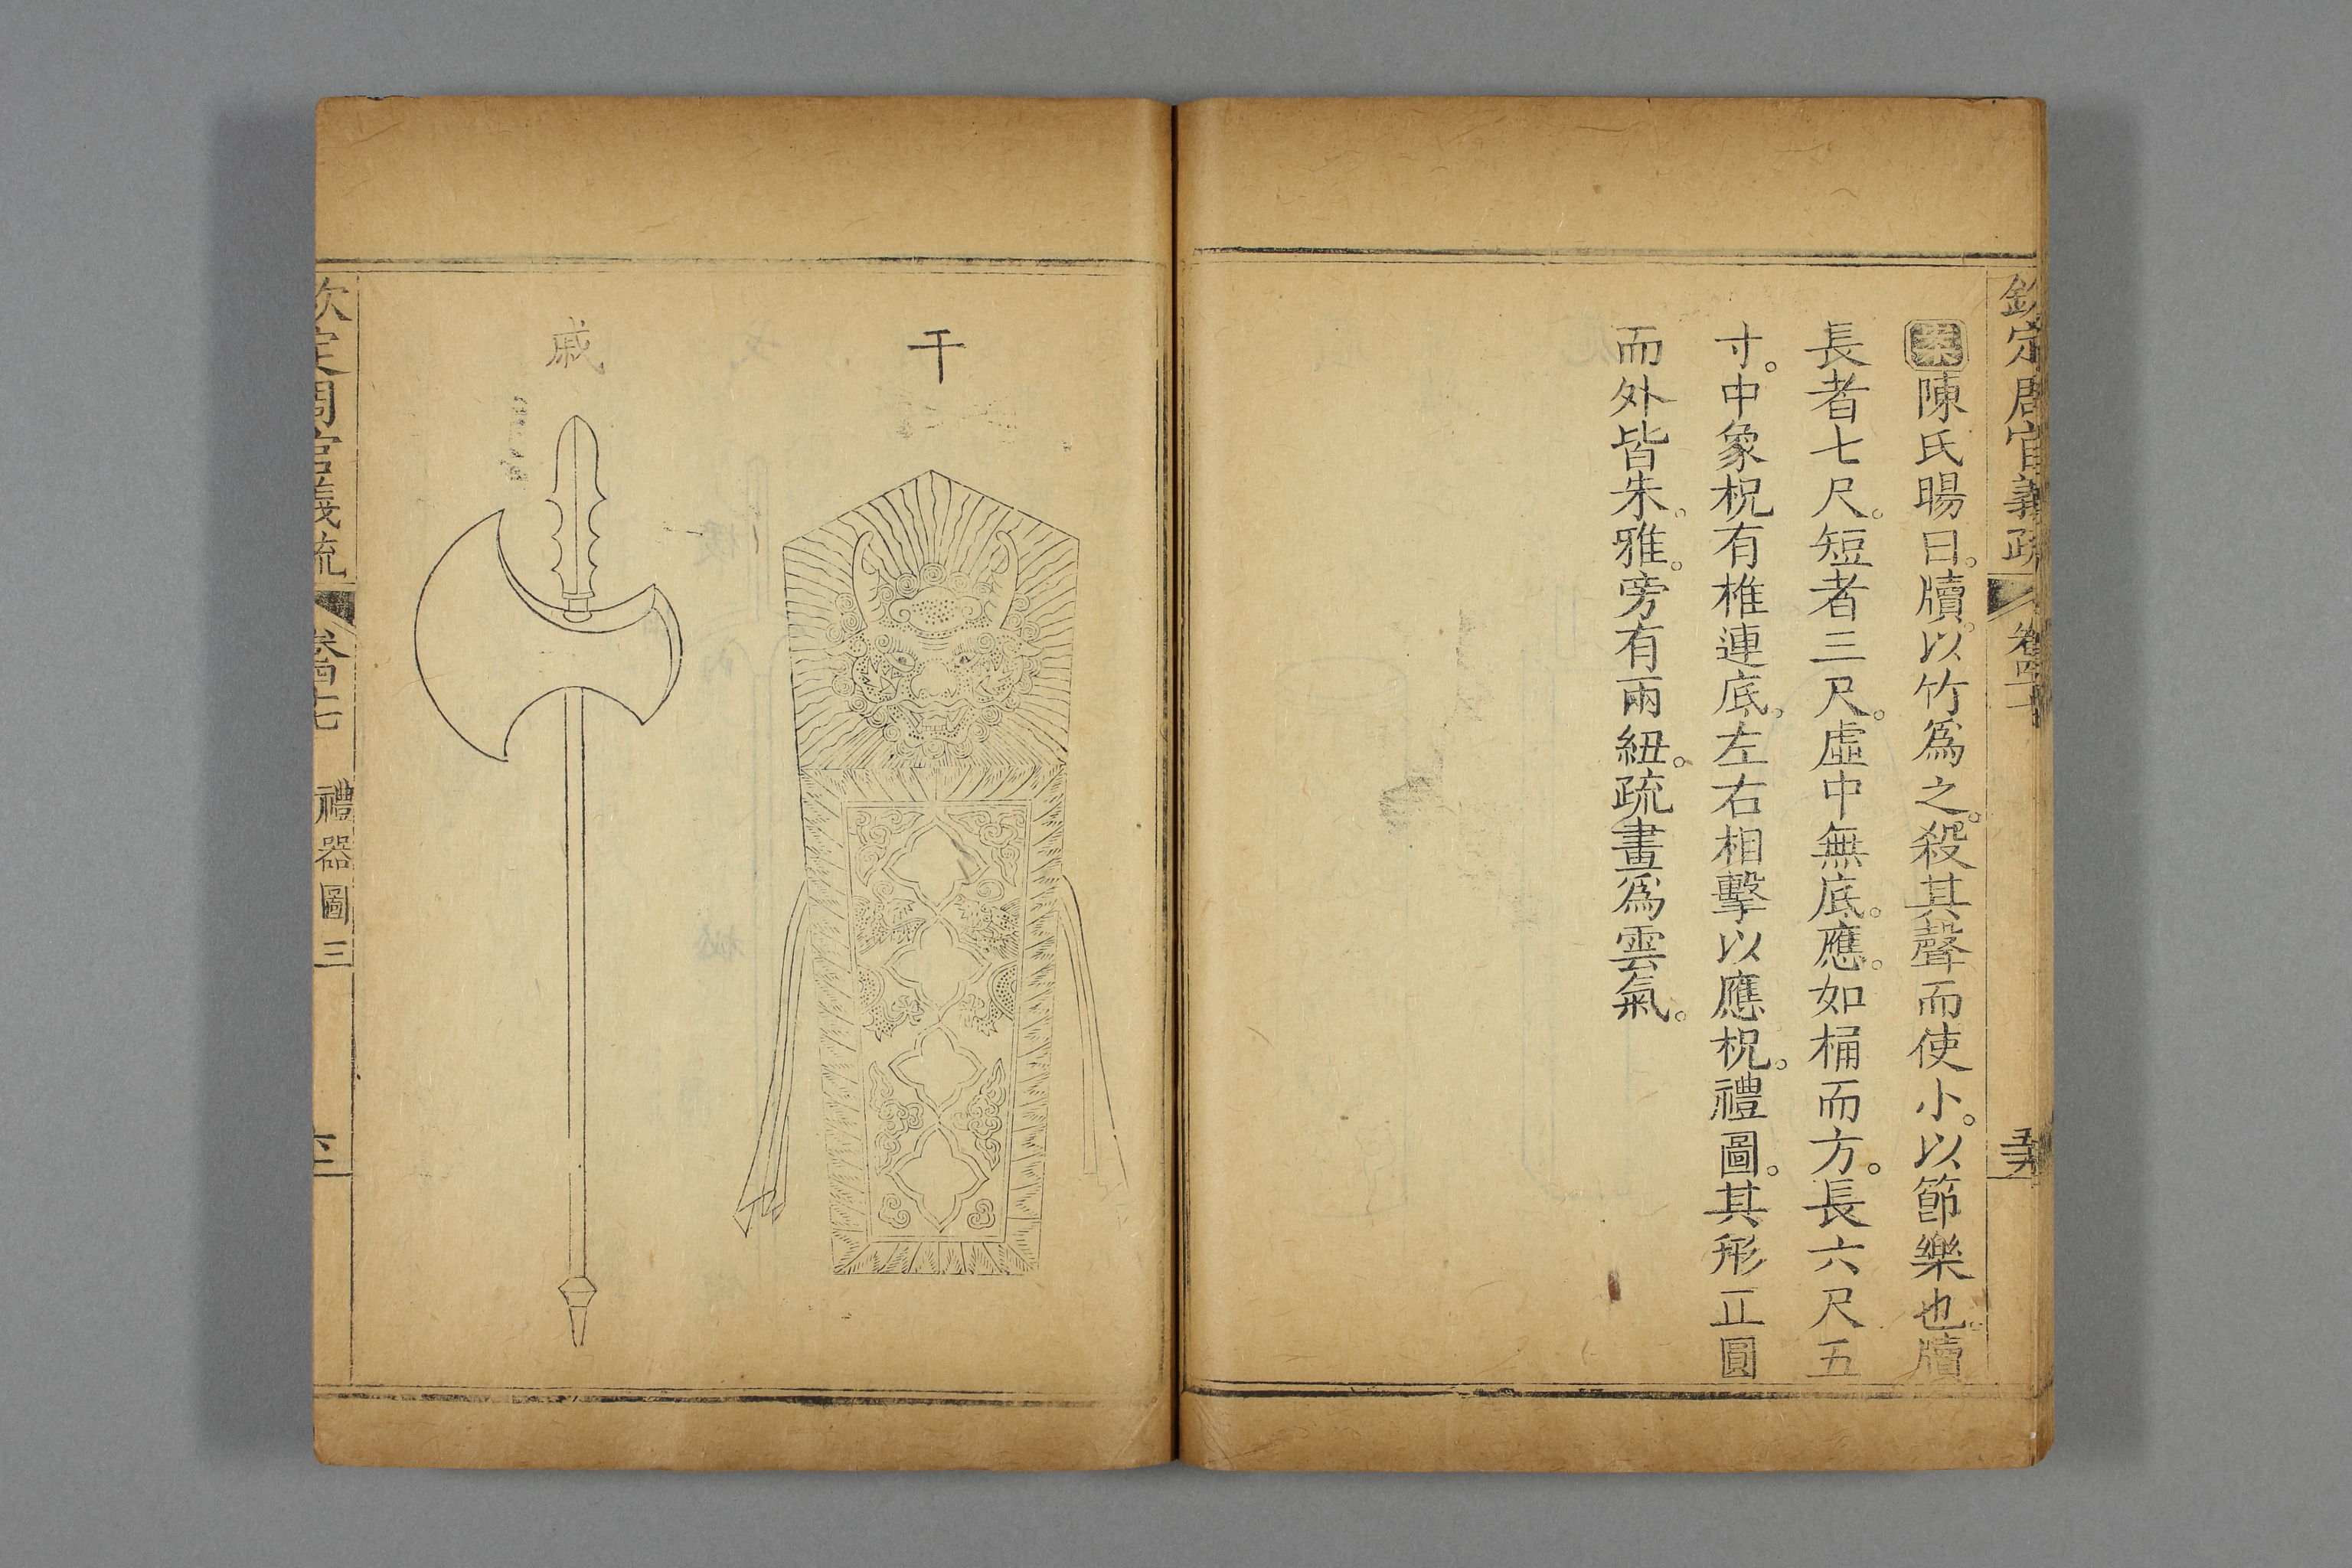 欽定周官義疏
陳氏暘曰。牘。以竹爲之。殺其聲而使小。以節樂也。牘
長者七尺。短者三尺。虛中無底。應。如桶而方。長六尺五
寸。中象柷有椎連底。左右相擊以應柷。禮圖。其形正圓
而外皆朱。雅。旁有兩紐。疏畫爲雲氣。
干
戚
欽定周官義疏
禮器圖三